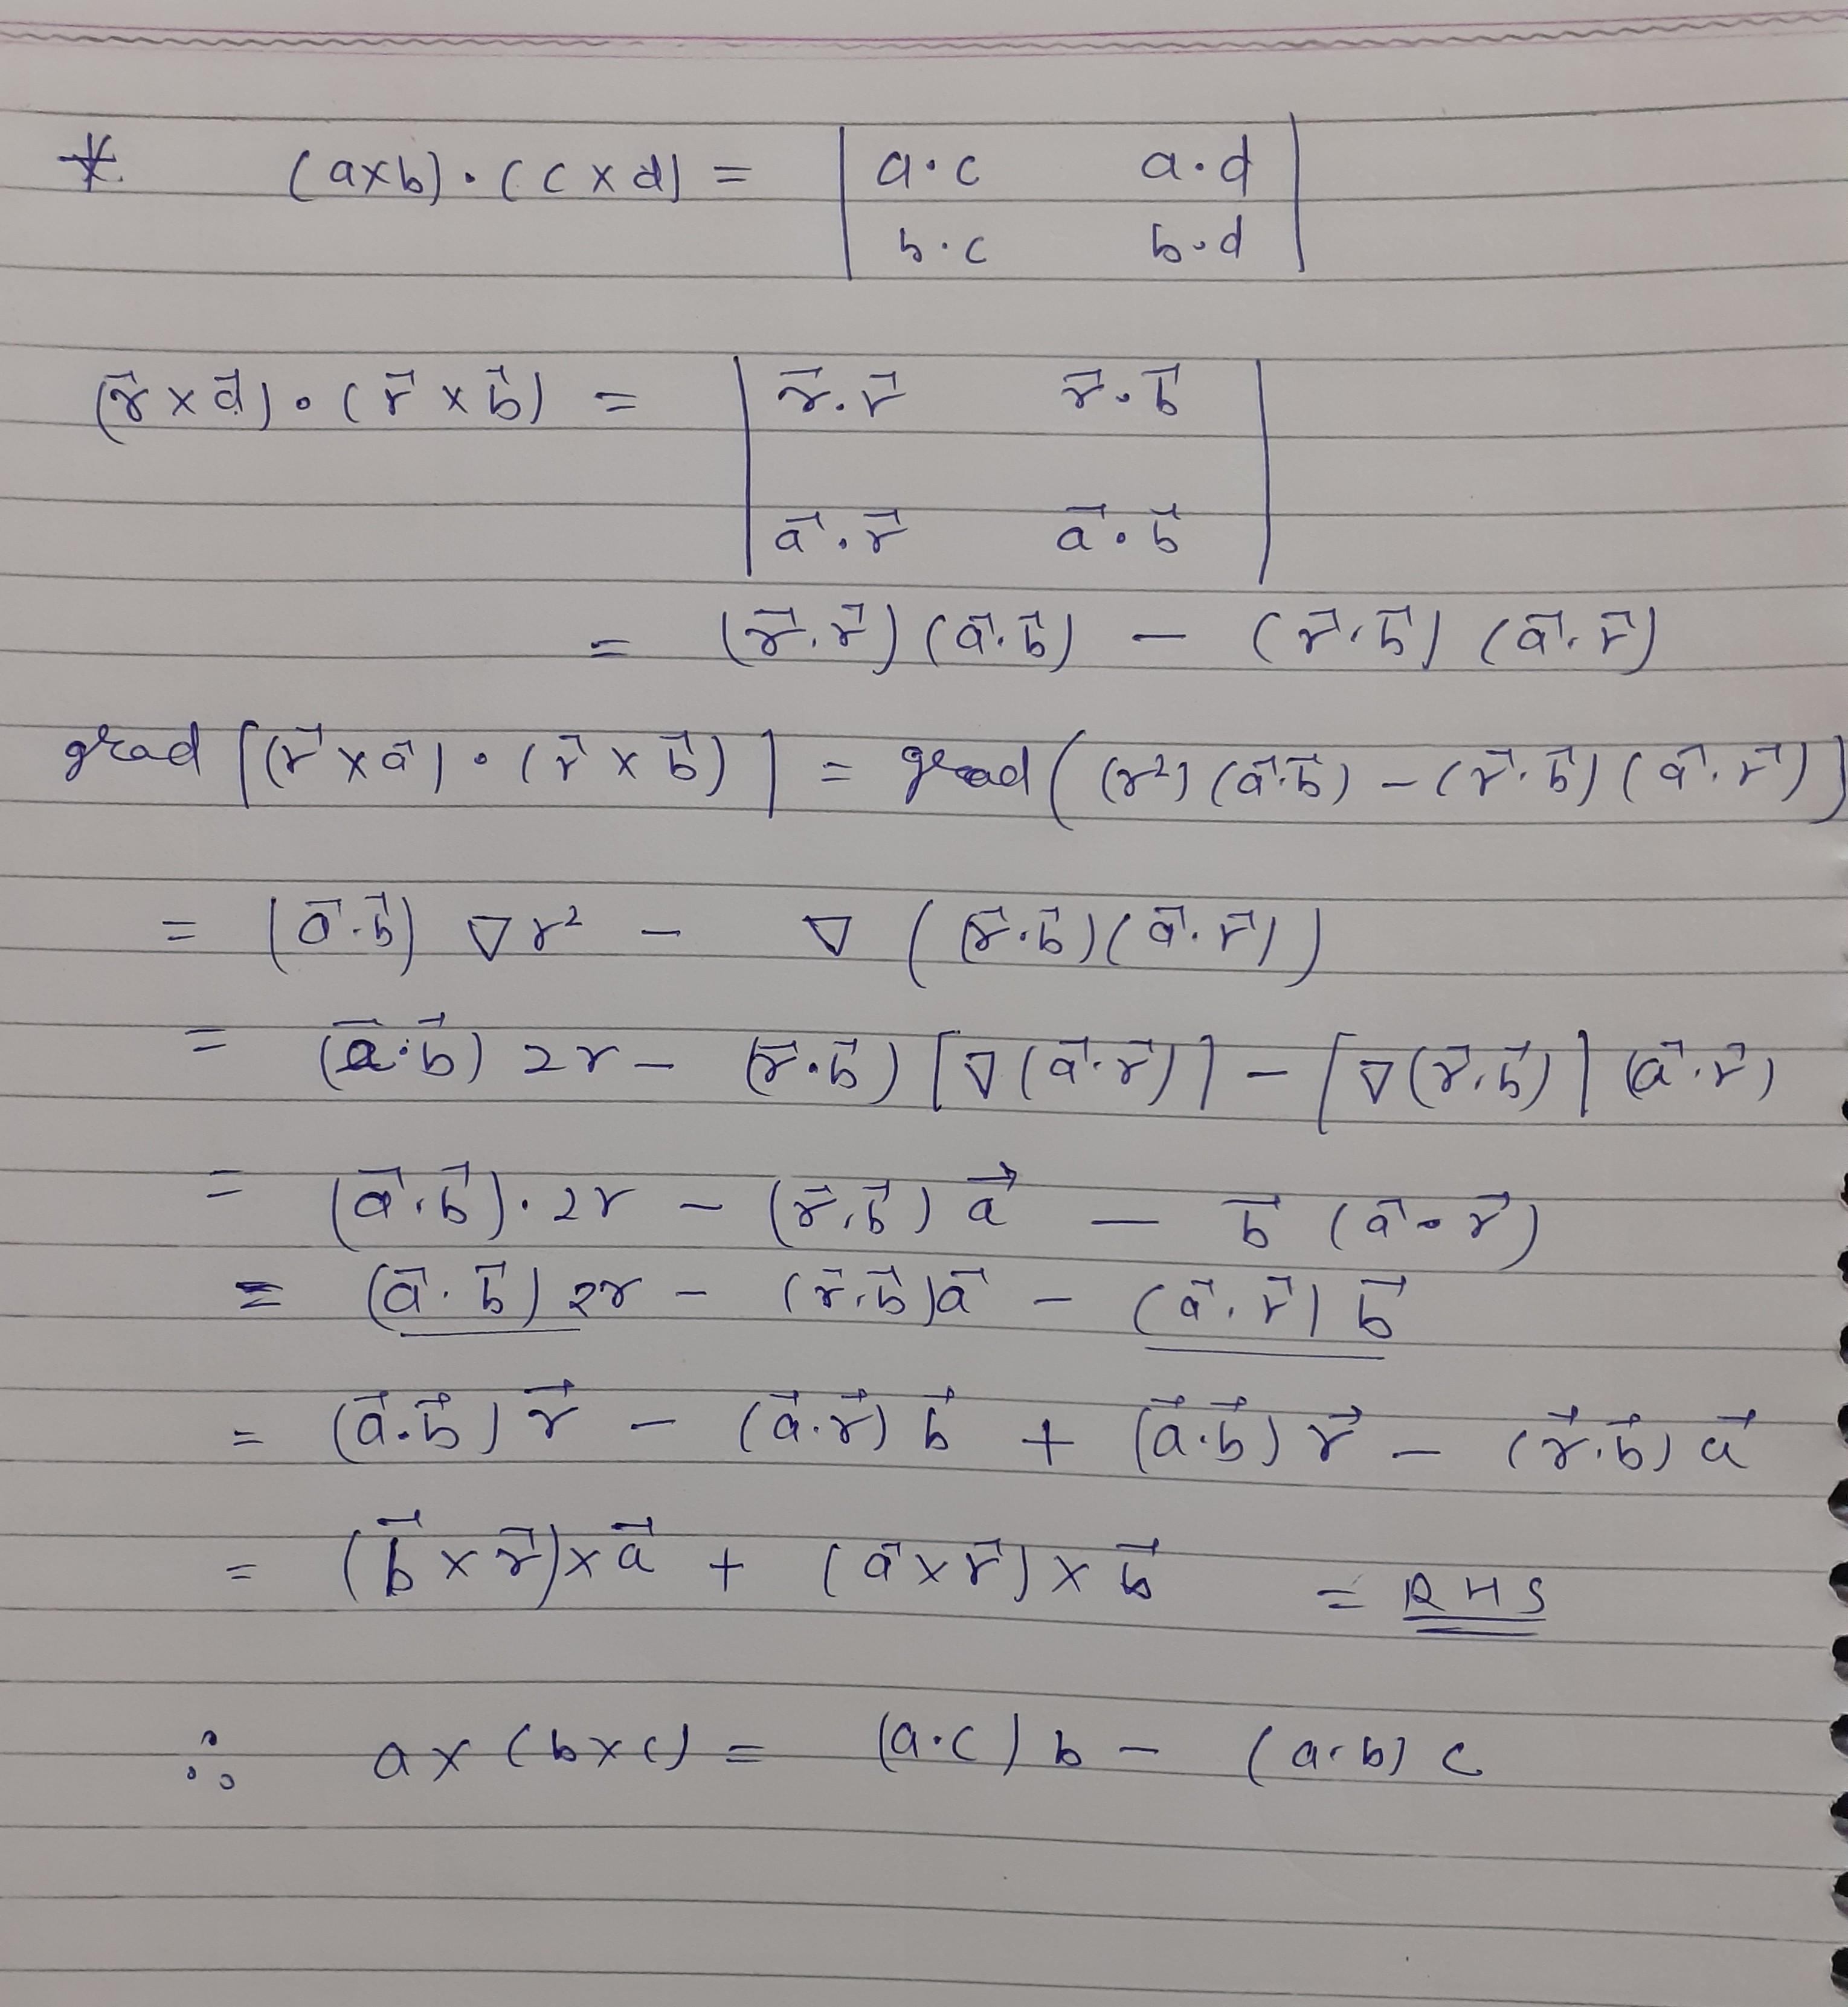 * (a×b)·(c×d) = | a·c a·d |
| b·c b·d |
(r⃗×a⃗)·(r⃗×b⃗) = | r⃗·r⃗ r⃗·b⃗ |
| a⃗·r⃗ a⃗·b⃗ |
= (r⃗·r⃗)(a⃗·b⃗) − (r⃗·b⃗)(a⃗·r⃗)
grad [(r⃗×a⃗)·(r⃗×b⃗)] = grad((r²)(a⃗·b⃗) − (r⃗·b⃗)(a⃗·r⃗))
= (a⃗·b⃗) ∇r² − ∇((r⃗·b⃗)(a⃗·r⃗))
= (a⃗·b⃗) 2r − (r⃗·b⃗)[∇(a⃗·r⃗)] − [∇(r⃗·b⃗)](a⃗·r⃗)
= (a⃗·b⃗)·2r − (r⃗·b⃗) a⃗ − b⃗ (a⃗·r⃗)
= (a⃗·b⃗) 2r − (r⃗·b⃗)a⃗ − (a⃗·r⃗) b⃗
= (a⃗·b⃗) r⃗ − (a⃗·r⃗) b⃗ + (a⃗·b⃗) r⃗ − (r⃗·b⃗) a⃗
= (b⃗×r⃗)×a⃗ + (a⃗×r⃗)×b⃗ = RHS
∴ a×(b×c) = (a·c) b − (a·b) c